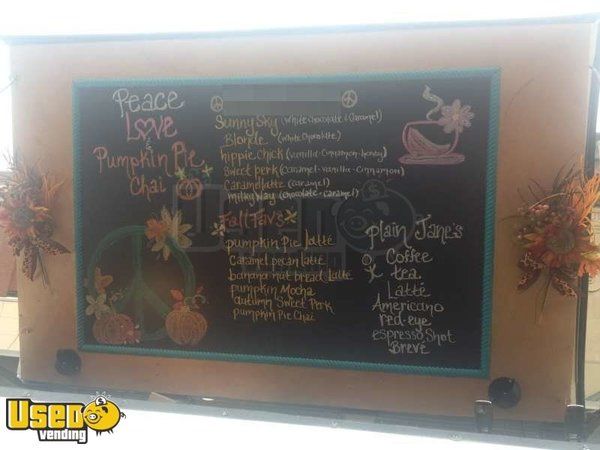 Peace
Love
&
Pumpkin Pie
Chai
Sunny Sky (white chocolate & caramel)
Blonde (white chocolate)
hippie chick (vanilla-cinnamon-honey)
sweet perk (caramel-vanilla-cinnamon)
Caramel latte (caramel)
milky Way (chocolate-caramel)
Fall Favs
pumpkin Pie Latté
Caramel pecan latte
banana nut bread Latte
pumpkin Mocha
autumn Sweet Perk
pumpkin Pie Chai
Plain Jane's
Coffee
tea
Latté
Americano
red-eye
espresso Shot
Brevé
USED
vending